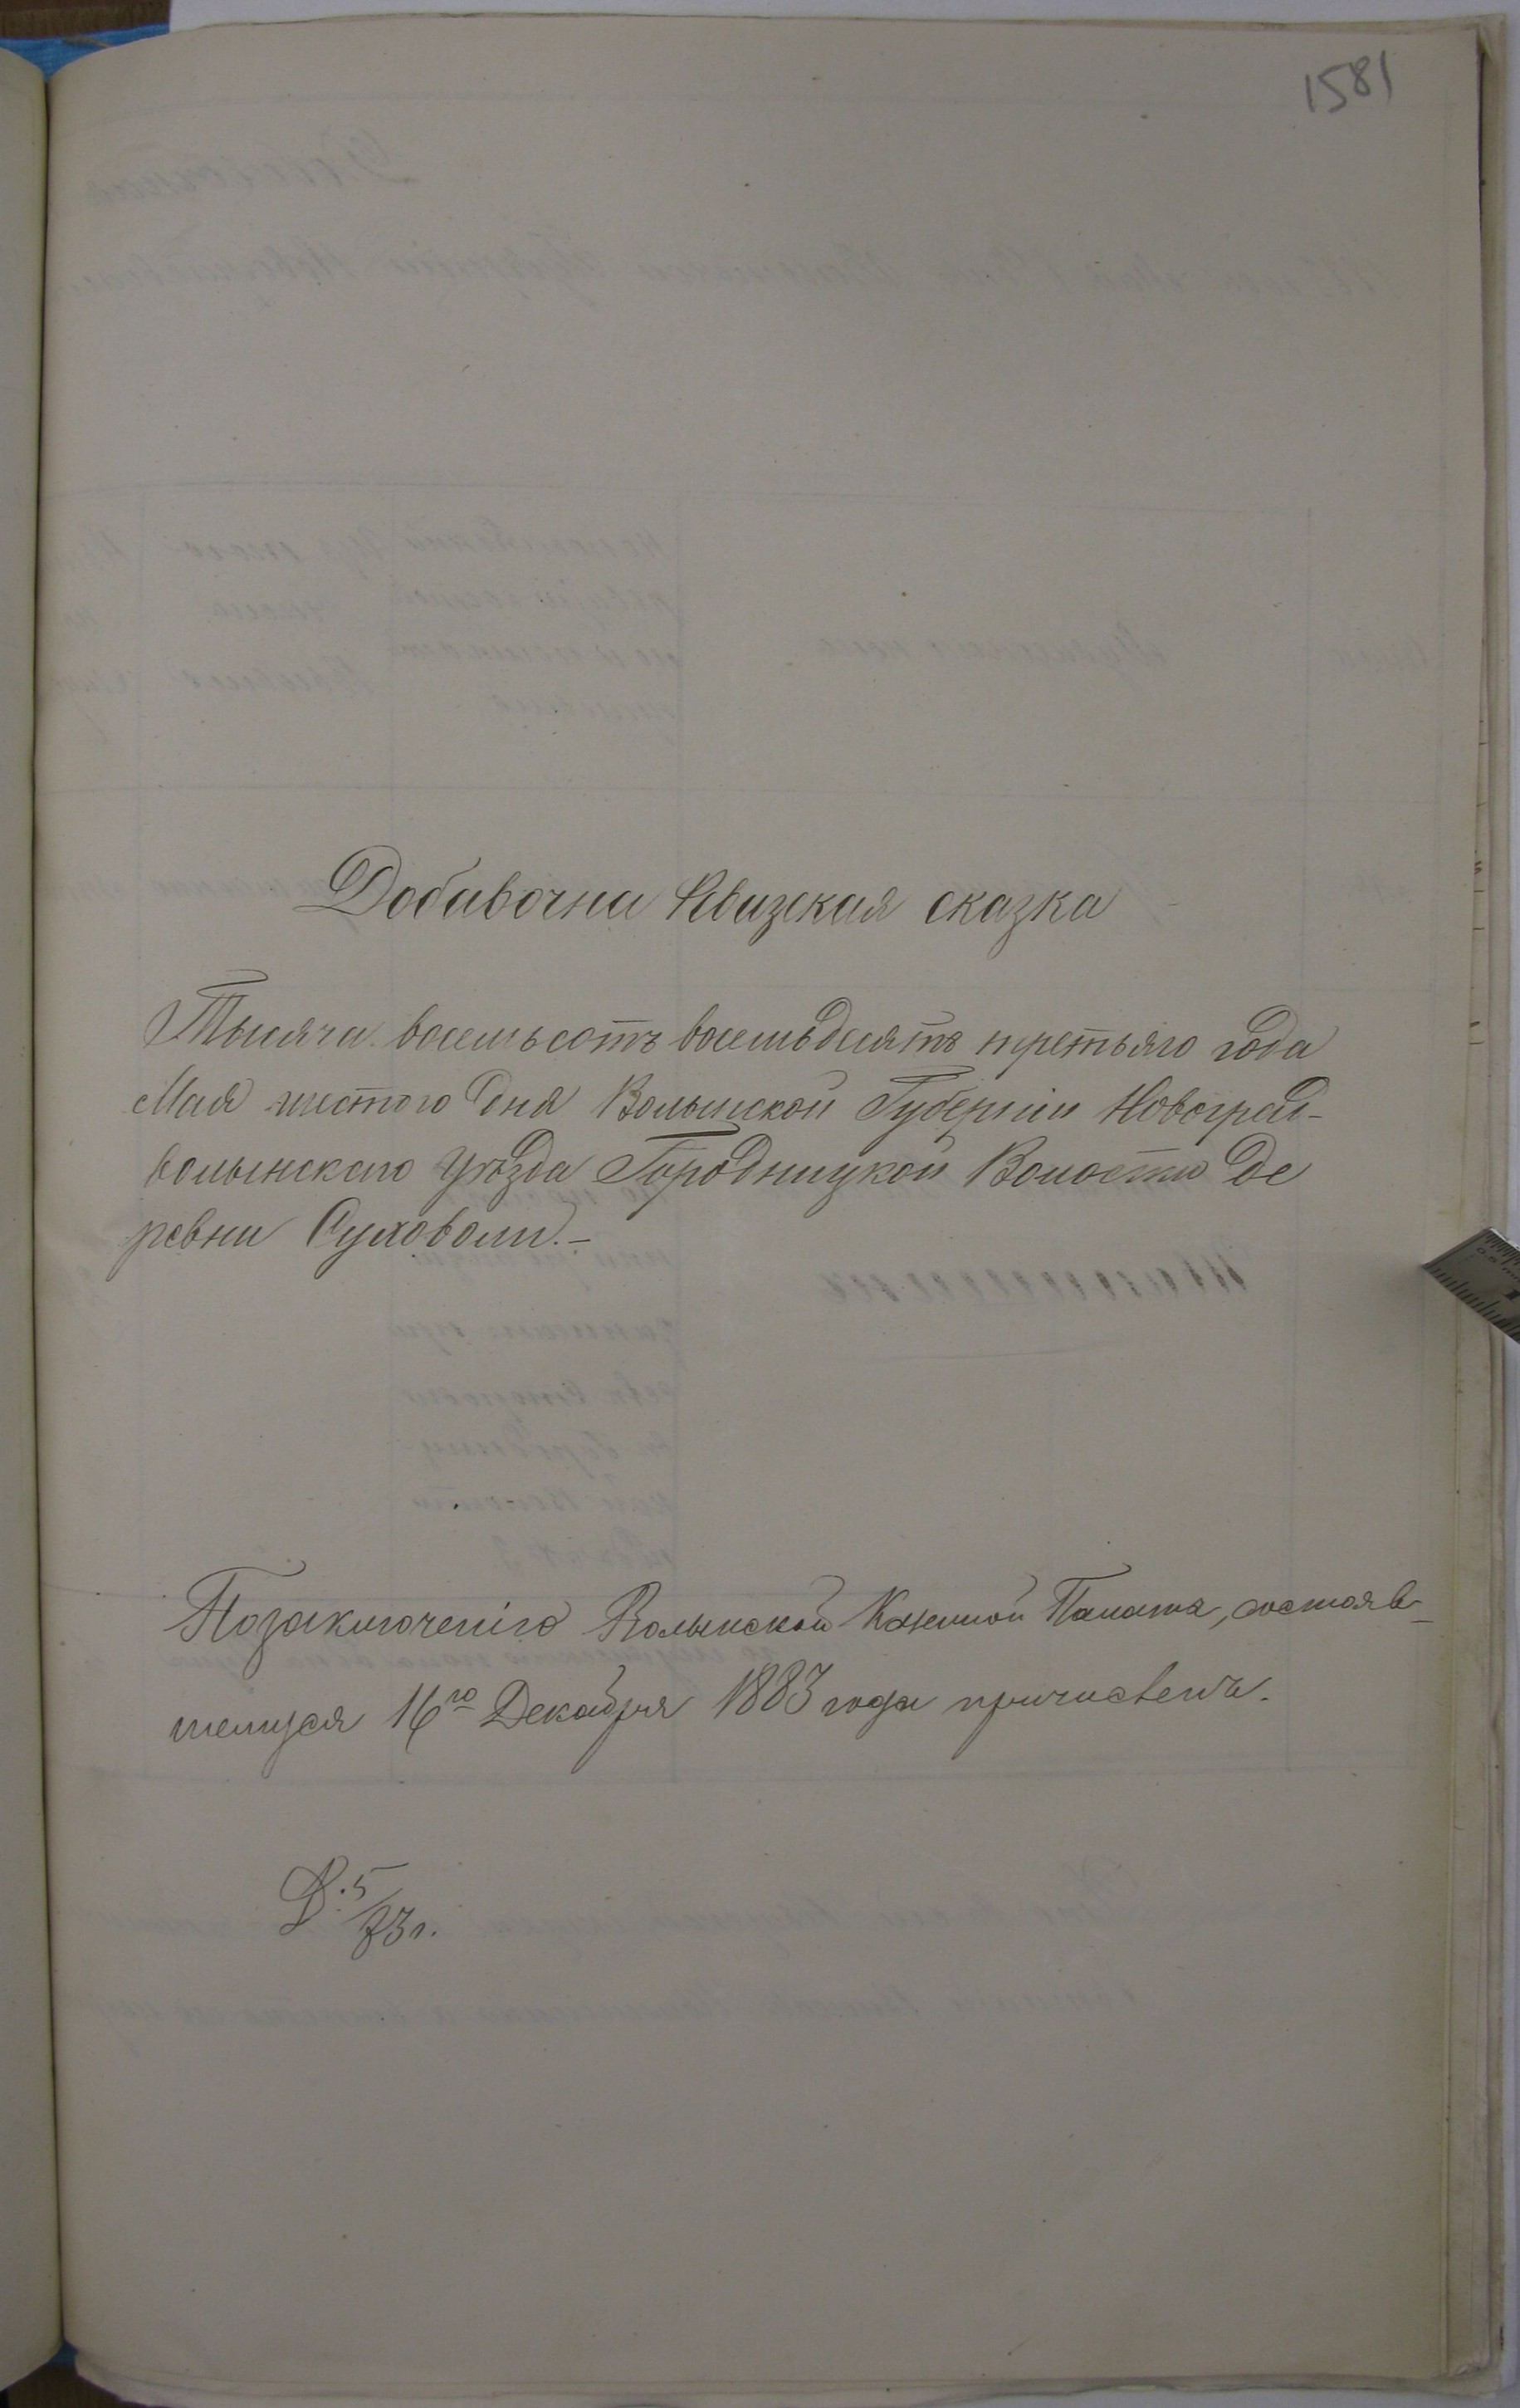 1581
Добавочна Ревизская сказка
Тысяча восемьсотъ восемьдсятъ третьяго года
Мая шестого дня Волынской Губерніи Новоград-
волынскаго уѣзда Городницкой Волости Де
ревни Суховоли.-
Позаключенію Волынской Казенной Палаты, состояв-
шемуся 16го Декабря 1883 года причисленъ.
Д. 5/83 г.